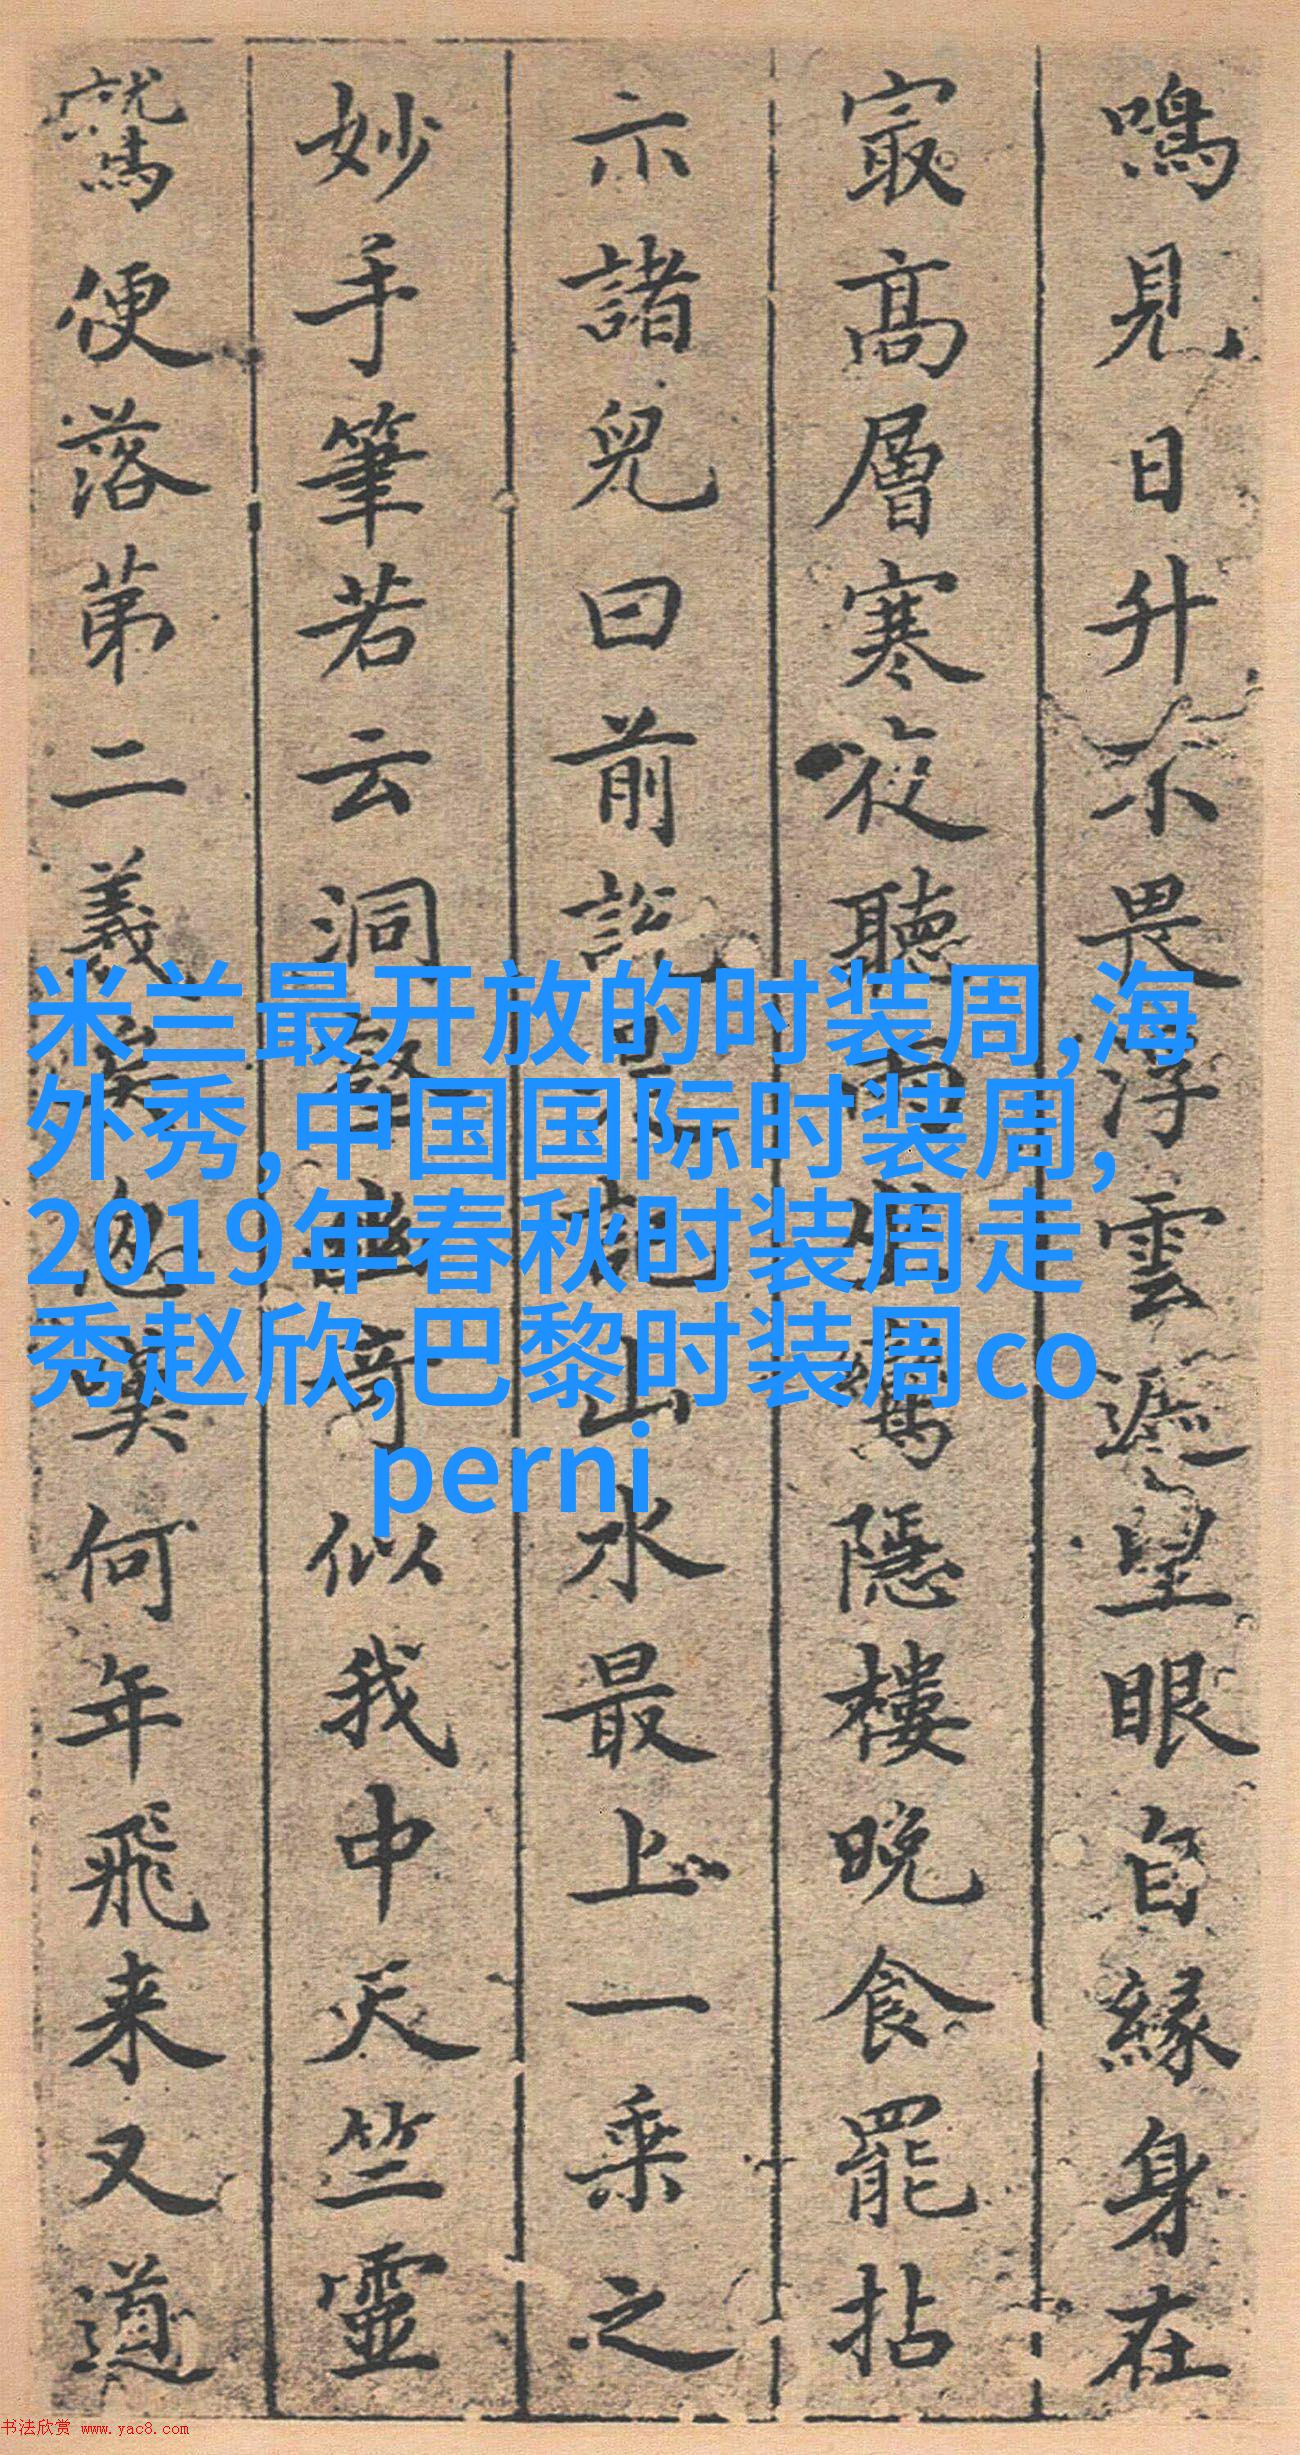 鳴見日升不畏浮雲遮望眼自緣身在
冣高層寒夜聽隱樓晚食罷拈
示諸兒曰前説山水最上一乘之
妙手筆若云洞壑幽奇似我中天竺靈
鷲便落苐二義矣忽嘆何年飛来又道
米兰最开放的时装周,海
外秀,中国国际时装周,
2019年春秋时装周走
秀赵欣,巴黎时装周co
perni
书法欣赏 www.yac8.com